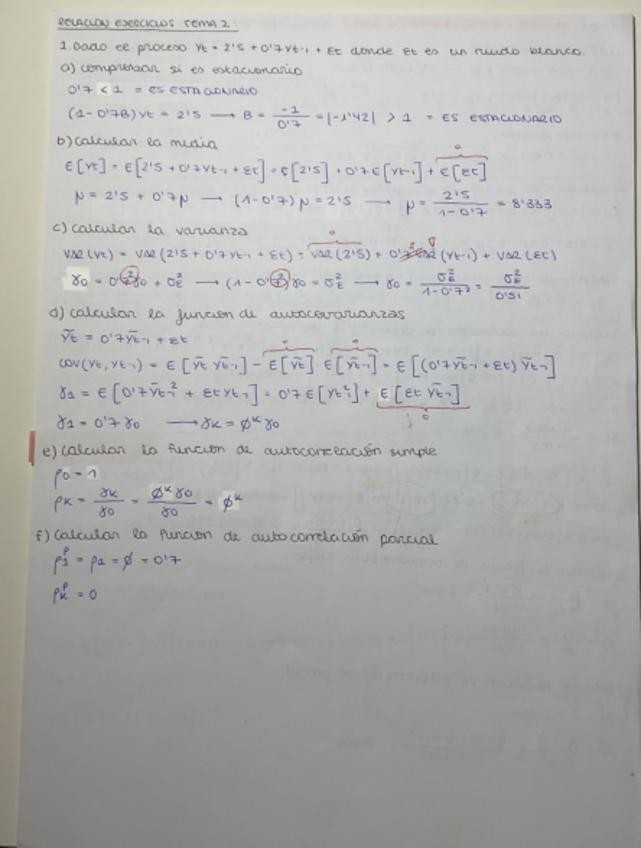 RELACION EJERCICIOS TEMA 2
1. Dado el proceso Yt = 2'5 + 0'7Yt-1 + Et donde Et es un ruido blanco.
a) comprobar si es estacionario
0'7 < 1 = ES ESTACIONARIO
(1-0'7B) Yt = 2'5 → B = -1/0'7 = |-1'42| > 1 = ES ESTACIONARIO
b) calcular la media
0
E[Yt] = E[2'5 + 0'7Yt-1 + Et] = E[2'5] + 0'7 E[Yt-1] + E[Et]
μ = 2'5 + 0'7μ → (1-0'7) μ = 2'5 → μ = 2'5/1-0'7 = 8'333
c) calcular la varianza
0
VAR(Yt) = VAR(2'5 + 0'7Yt-1 + Et) = VAR(2'5) + 0'7² VAR(Yt-1) + VAR(Et)
γ0 = 0'7²γ0 + σ²E → (1-0'7²)γ0 = σ²E → γ0 = σ²E/1-0'7² = σ²E/0'51
d) calcular la funcion de autocovarianzas
Ỹt = 0'7Ỹt-1 + Et
0 0
COV(Yt, Yt-1) = E[Ỹt Ỹt-1] - E[Ỹt] E[Ỹt-1] = E[(0'7Ỹt-1 + Et) Ỹt-1]
γ1 = E[0'7Ỹt-1² + EtYt-1] = 0'7 E[Yt-1²] + E[Et Ỹt-1]
0
γ1 = 0'7 γ0 → γK = ØᴷƔ0
e) calcular la función de autocorrelación simple
ρ0 = 1
ρK = γK/γ0 = Øᴷγ0/γ0 = Øᴷ
f) calcular la funcion de autocorrelación parcial
ρ1ᴾ = ρ1 = Ø = 0'7
ρKᴾ = 0